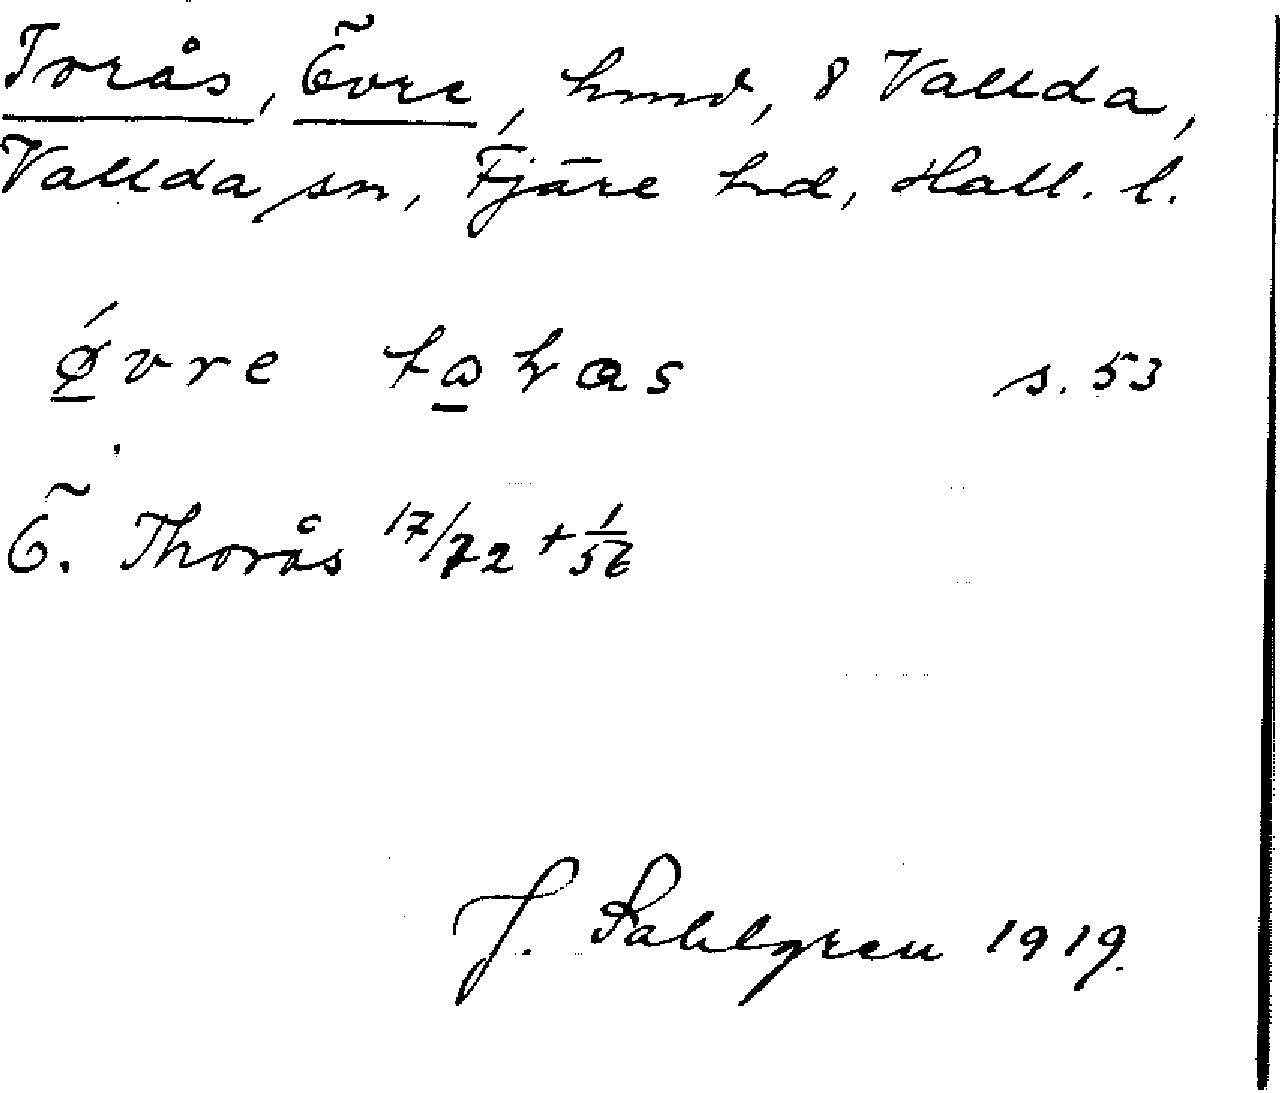 Torås, Övre, hmd, 8 Vallda,
Vallda sn, Fjäre hd, Hall. l.
s. 53
Ö. Thorås 17/72 + 1/56
J. Sahlgren 1919.